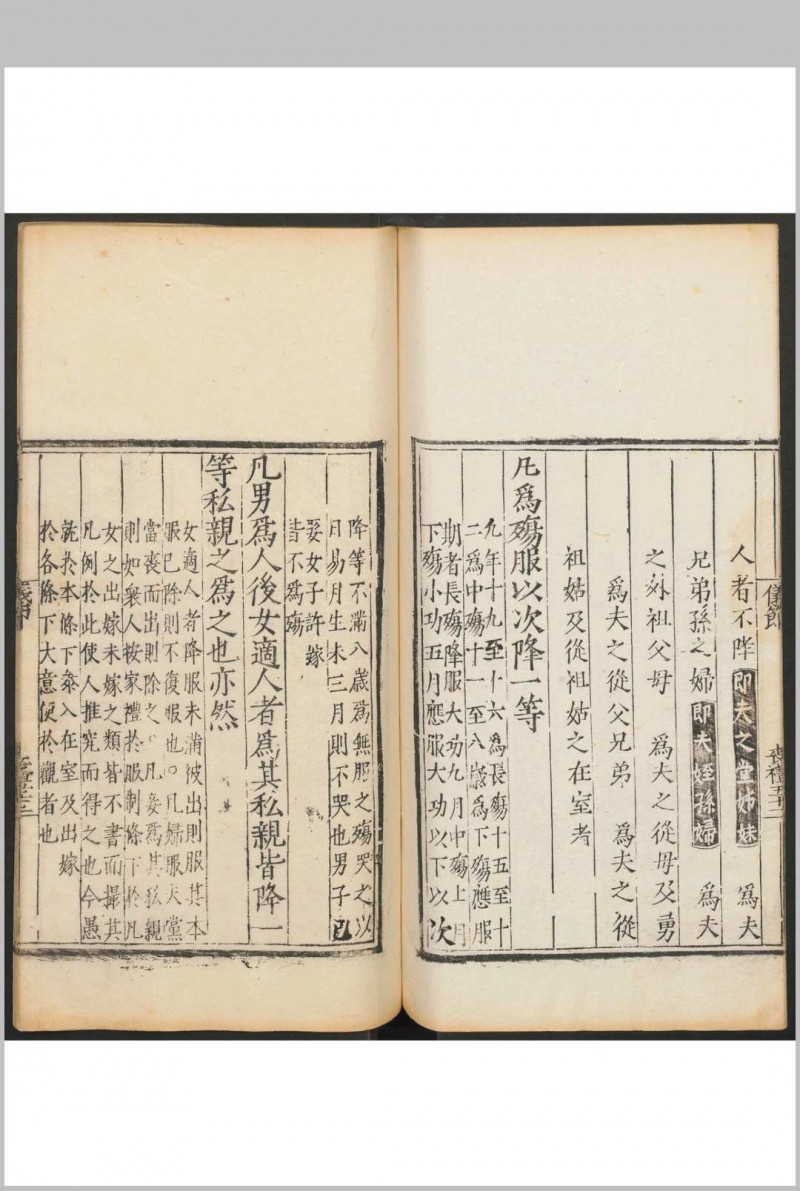 儀節
喪禮五十二
人者不降即夫之堂姊妹 爲夫
兄弟孫之婦即夫姪孫婦 爲夫
之外祖父母 爲夫之從母及舅
爲夫之從父兄弟 爲夫之從
祖姑及從祖姑之在室者
凡爲殤服以次降一等
凡年十九至十六爲長殤十五至十
二爲中殤十一至八歲爲下殤應服
期者長殤降服大功九月中殤七月
下殤小功五月應服大功以下以次
降等不滿八歲爲無服之殤哭之以
日易月生未三月則不哭也男子已
娶女子許嫁
皆不爲殤
凡男爲人後女適人者爲其私親皆降一
等私親之爲之也亦然
女適人者降服未滿被出則服其本
服已除則不復服也。凡婦服夫黨
當喪而出則除之。凡妾爲其私親
則如衆人按家禮於服制條下於凡
女之出嫁未嫁之類皆不書而撮其
凡例於此使人推究而得之也今愚
就於本條下叅入在室及出嫁
於各條下大意便於觀者也